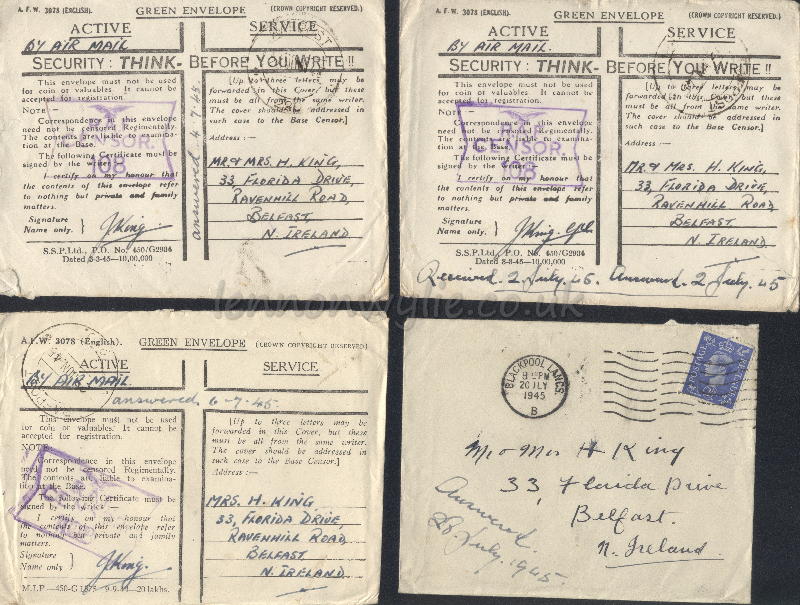 A.F.W. 3078 (ENGLISH). GREEN ENVELOPE (CROWN COPYRIGHT RESERVED.)
ACTIVE SERVICE
BY AIR MAIL
SECURITY: THINK- BEFORE YOU WRITE!!
This envelope must not be used
for coin or valuables. It cannot be
accepted for registration.
NOTE:-
Correspondence in this envelope
need not be censored Regimentally.
The contents are liable to examina-
tion at the Base.
The following Certificate must be
signed by the writer:-
I certify on my honour that
the contents of this envelope refer
to nothing but private and family
matters.
Signature
Name only. } J King.
CENSOR.
108
answered 4-7-45
[Up to three letters may be
forwarded in this Cover, but these
must be all from the same writer.
The cover should be addressed in
such case to the Base Censor.]
Address:-
MR & MRS. H. KING,
33, FLORIDA DRIVE,
RAVENHILL ROAD,
BELFAST,
N. IRELAND.
S.S.P.Ltd., P.O. No. 450/G2934
Dated 8-3-45-10,00,000
A.F.W. 3078 (ENGLISH). GREEN ENVELOPE (CROWN COPYRIGHT RESERVED.)
ACTIVE SERVICE
BY AIR MAIL.
SECURITY: THINK- BEFORE YOU WRITE!!
This envelope must not be used
for coin or valuables. It cannot be
accepted for registration.
NOTE:-
Correspondence in this envelope
need not be censored Regimentally.
The contents are liable to examina-
tion at the Base.
The following Certificate must be
signed by the writer:-
I certify on my honour that
the contents of this envelope refer
to nothing but private and family
matters.
Signature
Name only. } J King. Cpl.
CENSOR.
108
[Up to three letters may be
forwarded in this Cover, but these
must be all from the same writer.
The cover should be addressed in
such case to the Base Censor.]
Address:-
MR & MRS. H. KING,
33, FLORIDA DRIVE,
RAVENHILL ROAD,
BELFAST,
N. IRELAND.
S.S.P.Ltd., P.O. No. 450/G2934
Dated 8-3-45-10,00,000
Received 2 July. 45. Answered 2 July. 45
A.F.W. 3078 (English). GREEN ENVELOPE (CROWN COPYRIGHT RESERVED.)
ACTIVE SERVICE
BY AIR MAIL
answered 6-7-45
This envelope must not be used
for coin or valuables. It cannot be
accepted for registration.
NOTE
Correspondence in this envelope
need not be censored Regimentally.
The contents are liable to examina-
tion at the Base.
The following Certificate must be
signed by the writer:-
I certify on my honour that
the contents of this envelope refer
to nothing but private and family
matters.
Signature
Name only } J King.
[Up to three letters may be
forwarded in this Cover, but these
must be all from the same writer.
The cover should be addressed in
such case to the Base Censor.]
Address:-
MRS. H. KING
33, FLORIDA DRIVE,
RAVENHILL ROAD,
BELFAST
N. IRELAND.
BLACKPOOL, LANCS.
20 JLY
1945
B
POSTAGE
Mr & Mrs H King
33, Florida Drive
Belfast.
N. Ireland.
Answered.
28. July. 1945.
lennonwylie.co.uk